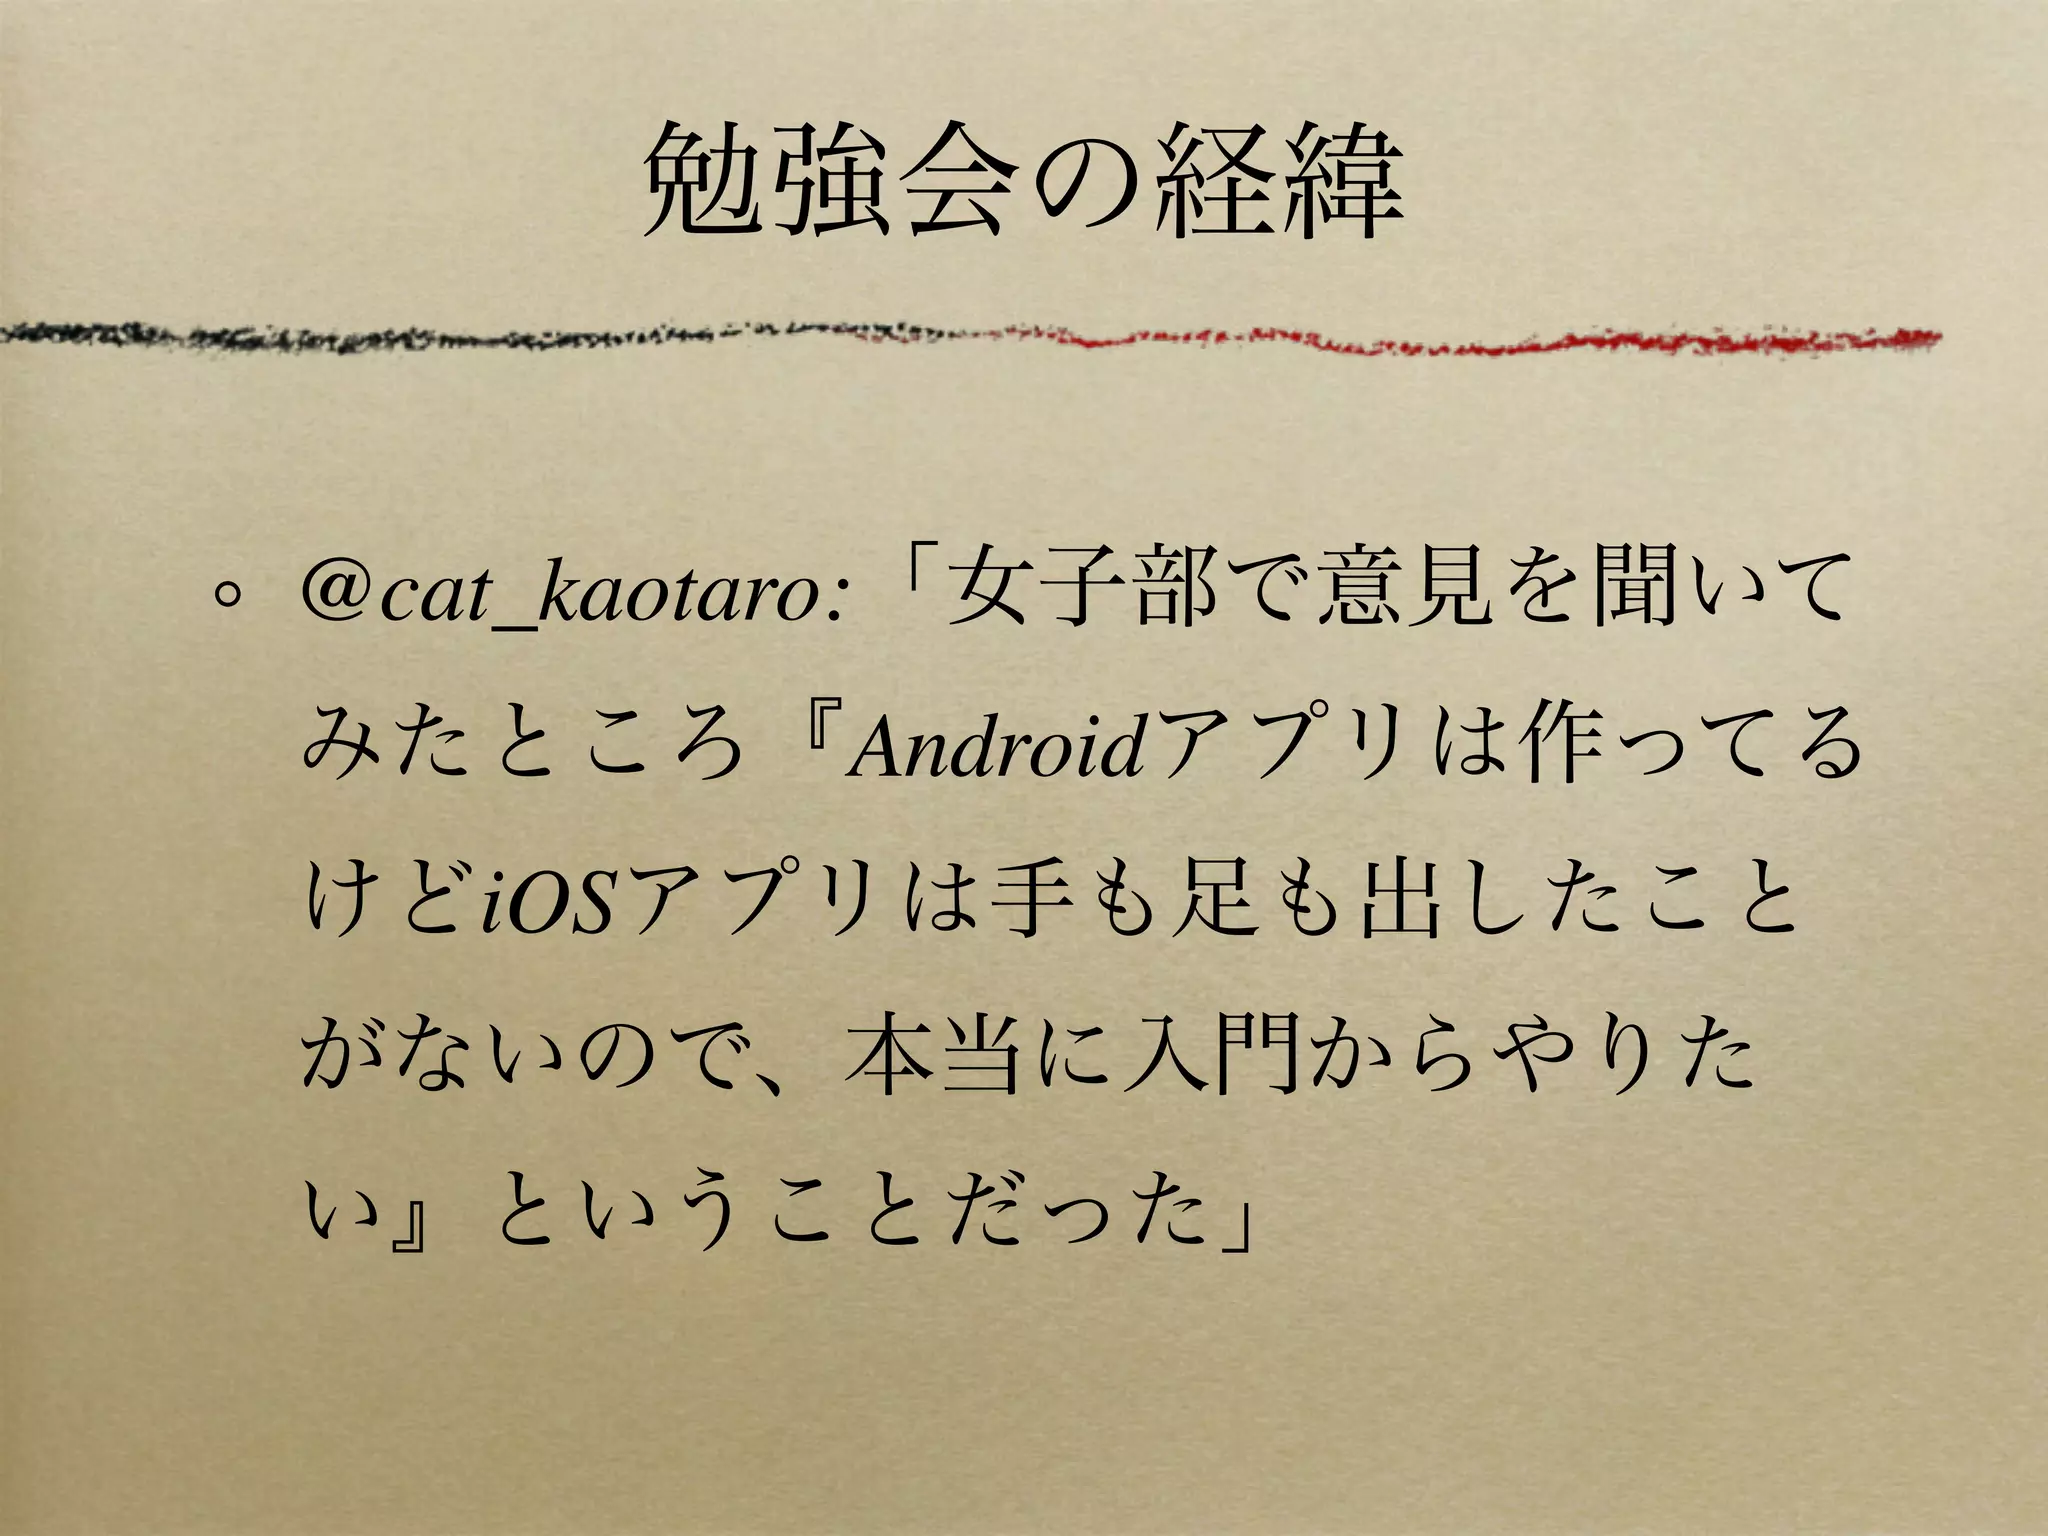 勉強会の経緯
@cat_kaotaro:「女子部で意見を聞いて
みたところ『Androidアプリは作ってる
けどiOSアプリは手も足も出したこと
がないので、本当に入門からやりた
い』ということだった」